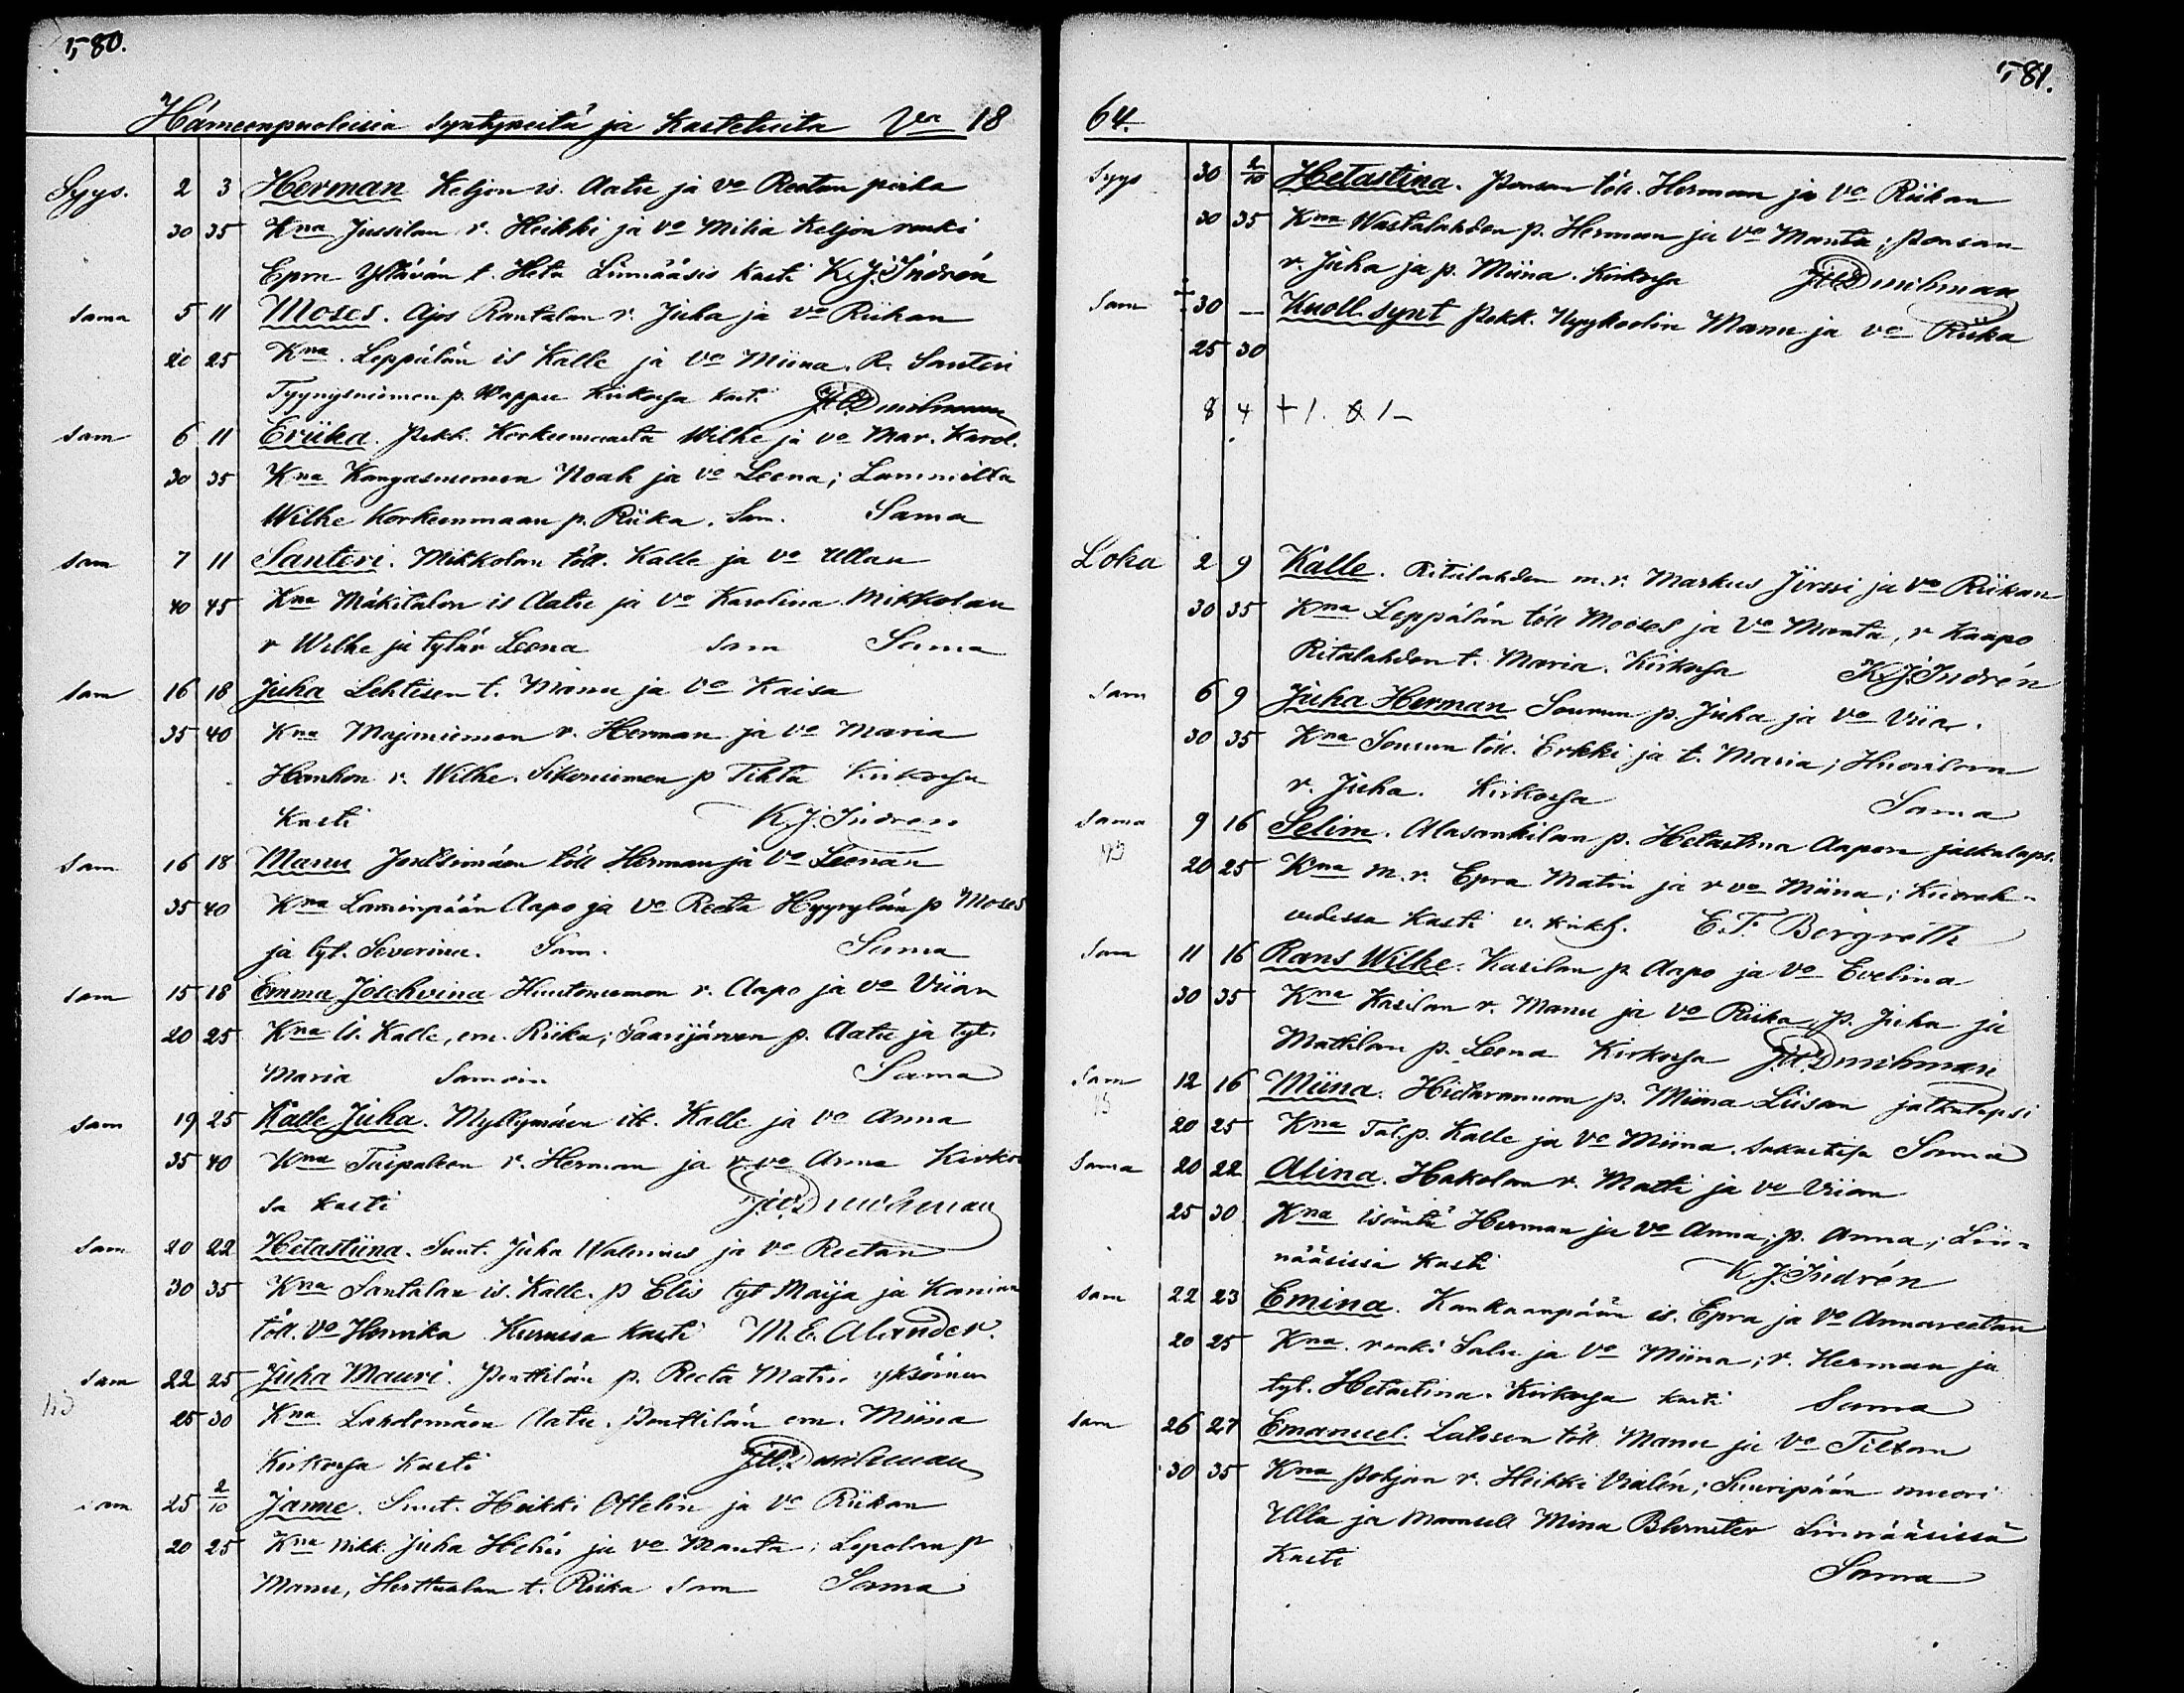 580.
Hämeenpuoleisia syntyneitä ja Kastetuita Vna 18
Syys. 2 3 Herman Keljon is. Aatu ja vo Reetan poika
30 35 Kna Jussilan r. Heikki ja vo Miina Keljon renki
Epra Yltävän t. Heta Linnääsis kasti K.J. Indrén
sama 5 11 Moses. Ajos Rantalan r. Juha ja vo Riikan
20 25 Kna. Leppälän is Kalle ja vo Miina. R. Santeri
Tyynysniemen p. Wappu Kirkossa kasti
sam 6 11 Eriika. Pekk. Korkeemaasta Wilhe ja vo Mar. Karol.
30 35 Kna Kangasniemen Noah ja vo Leena; Lammilta
Wilhe Korkeenmaan p. Riika. Sam. Sama
sam 7 11 Santeri. Mikkolan töll. Kalle ja vo Ullan
40 45 Kna Mäkitalon is Aatu ja vo Karolina Mikkolan
r Wilhe ja tytär Leena sam Sama
sam 16 18 Juha Lehtisen t. Manu ja vo Kaisa
35 40 Kna Majaniemen r. Herman ja vo Maria
Hanhon r. Wilhe. Sikoniemen p Tilta Kirkossa
Kasti K.J. Indren
sam 16 18 Manu Joutsimäen töll Herman ja vo Leenan
35 40 Kna Laminpään Aapo ja vo Reeta Hyyrylän p Moses
ja tyt. Severina. Sam. Sama
sam 15 18 Emma Joschvina Huutoniemen r. Aapo ja vo Viian
20 25 Kna is. Kalle, em. Riika; Saarijärven p. Aatu ja tyt.
Maria Samoin Sama
sam 19 25 Kalle Juha. Myllymäen itl. Kalle ja vo Anna
35 40 Kna Taipaleen r. Herman ja r vo Anna Kirkos
sa kasti
sam 20 22 Hetastiina. Sunt. Juha Walenius ja vo Reetan
30 35 Kna Santalan is. Kalle. p Elis tyt Maija ja
töll. vo Hennika Kurussa kasti M.E. Alander.
sam 22 25 Juha Mauri. Penttilän p. Reeta Matin yksöinen
25 30 Kna Lahdemäen Aatu. Penttilän em. Miina
Kirkossa kasti
sam 25 2/10 Janne. Sunt. Heikki Ottelin ja vo Riikan
20 25 Kna nikk. Juha Helin ja vo Manta; Lepolan p
Manu, Herttualan t. Riika sam Sama
581.
64.
Syys 30 2/10 Hetastina. Ponsan töll. Herman ja vo Riikan
30 35 Kna Wastalahden p. Herman ja vo Manta; Ponsan
r. Juha ja p. Miina. Kirkossa
Sam 30 — Kuoll. synt Pekk. Nyykoolin Manu ja vo Riika
25 30
8 4 + 1. & 1 -
Loka 2 9 Kalle. Ritalahden m.r. Markus Jörssi ja vo Riikan
30 35 Kna Leppälän töll Mooses ja vo Manta, r Kaapo
Ritalahden t. Maria. Kirkossa K.J. Indrén
sam 6 9 Juha Herman Sourun p. Juha ja vo Viia.
30 35 Kna Sourun töll. Erkki ja t. Maria; Huovilan
r. Juha. Kirkossa Sama
sama 9 16 Selim. Alasonkilan p. Hetastina Aapon jalkalaps.
20 25 Kna m.r. Epra Matin ja r vo Miina; Keuruh-
vedessa kasti v. kirkh. E.F. Bergroth
sam 11 16 Rans Wilhe. Kasilan p. Aapo ja vo Evelina
30 35 Kna Kasilan r. Manu ja vo Riika, p. Juha ja
Mattilan p. Leena Kirkossa
sam 12 16 Miina. Hietarannan p. Miina Liisan jalkalapsi
20 25 Kna Tal. p. Kalle ja vo Miina. Sama
sama 20 22 Alina. Hakolan r. Matti ja vo Viian
25 30 Kna isäntä Herman ja vo Anna; p. Anna; Lin-
nääsissä kasti K.J. Indrén
sam 22 23 Emina. Kankaanpään is. Epra ja vo Annareetan
20 25 Kna. renki Salu ja vo Miina; r. Herman ja
tyt. Hetastina. Kirkossa kasti Sama
sam 26 27 Emanuel. Latosen töll. Manu ja vo Tiltan
30 35 Kna Pohjan r. Heikki Vialén; Suuripään muori
Ulla ja Mamsell Mina Blomster Linnääsissä
Kasti Sama